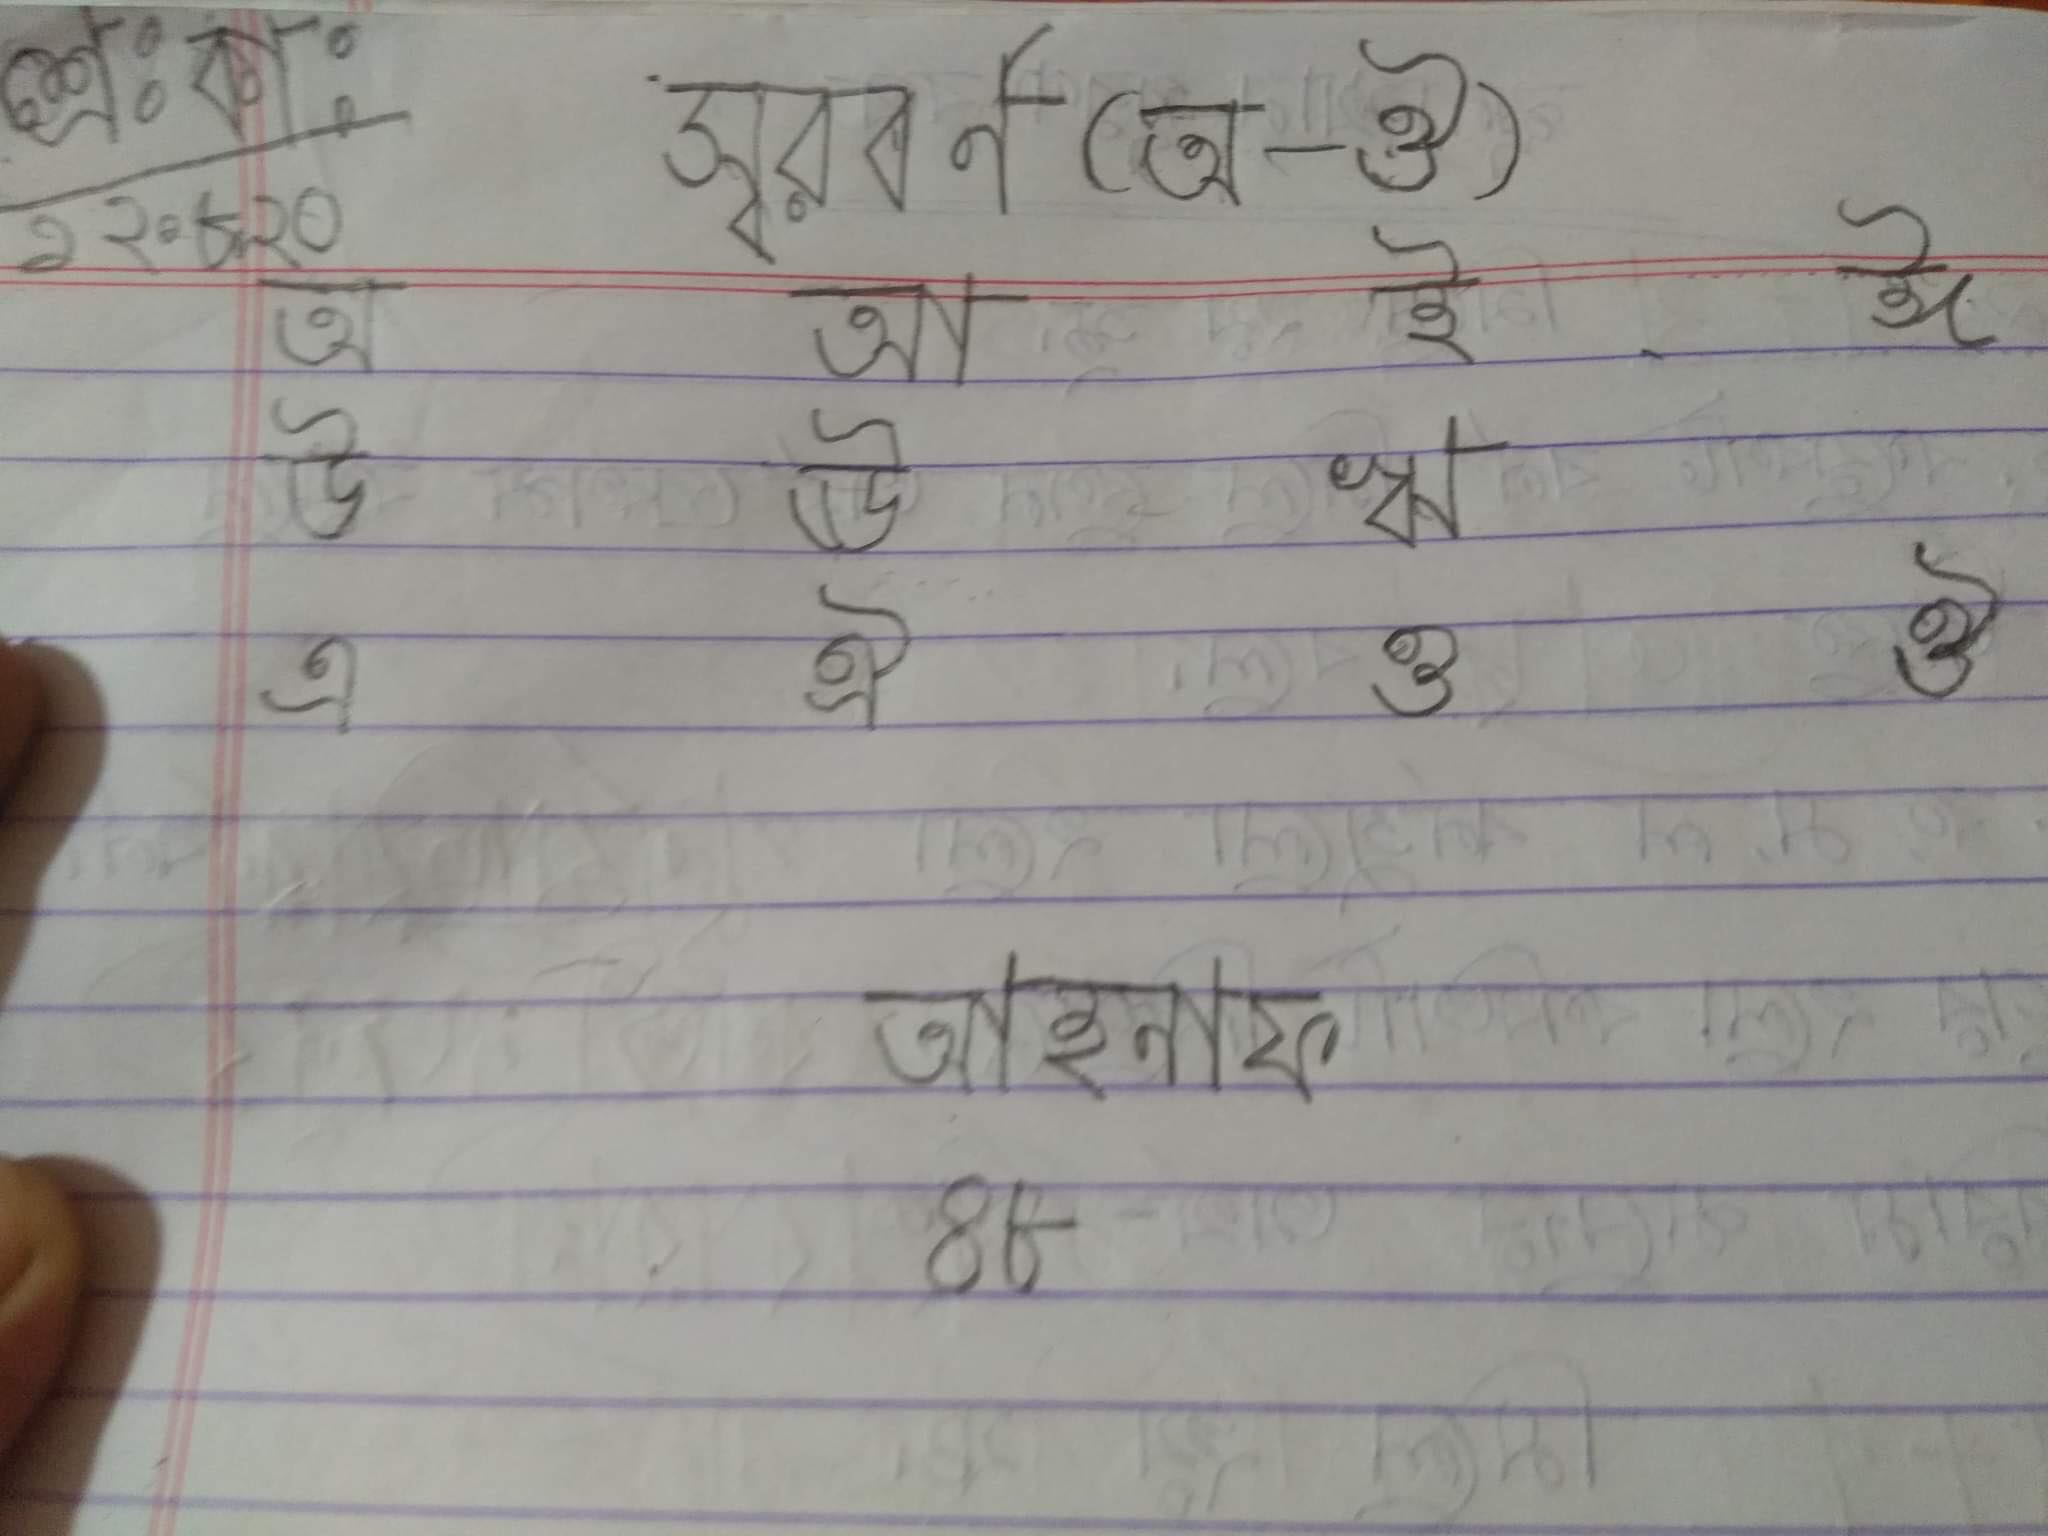 শ্রেঃ কাঃ
১২.৮.২০
স্বরবর্ন (অ-ঔ)
অ আ ই ঈ
উ ঊ ঋ
এ ঐ ও ঔ
আহনাফ
৪৮